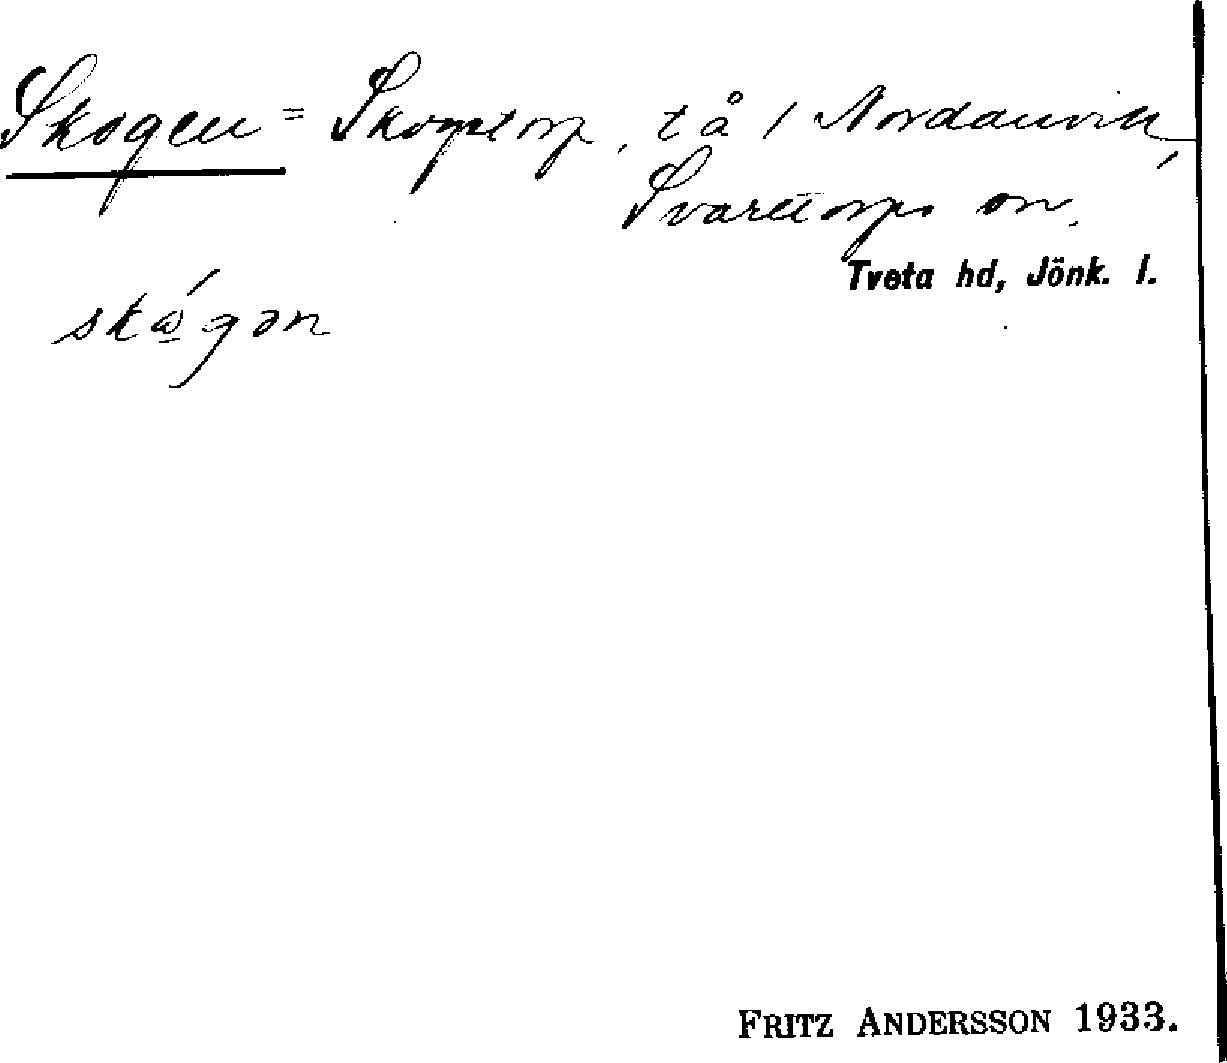 Skogen = Skogstorp, t å 1 Nordanvik,
Svarttorps sn,
Tveta hd, Jönk. l.
skógən
FRITZ ANDERSSON 1933.